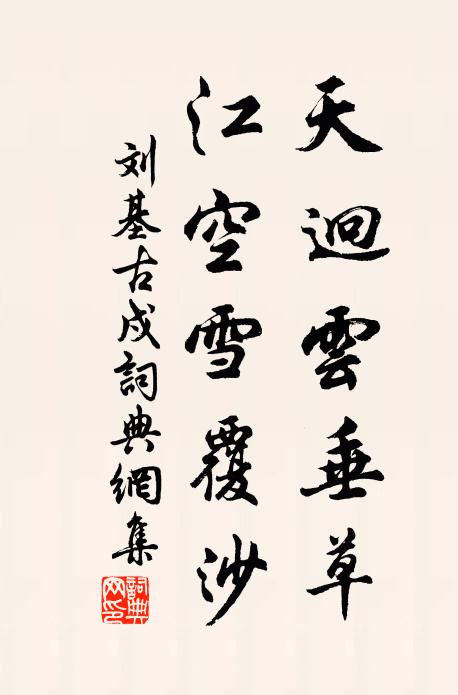 天迥雲垂草
江空雪覆沙
刘基古戍詞典網集
詞典網印